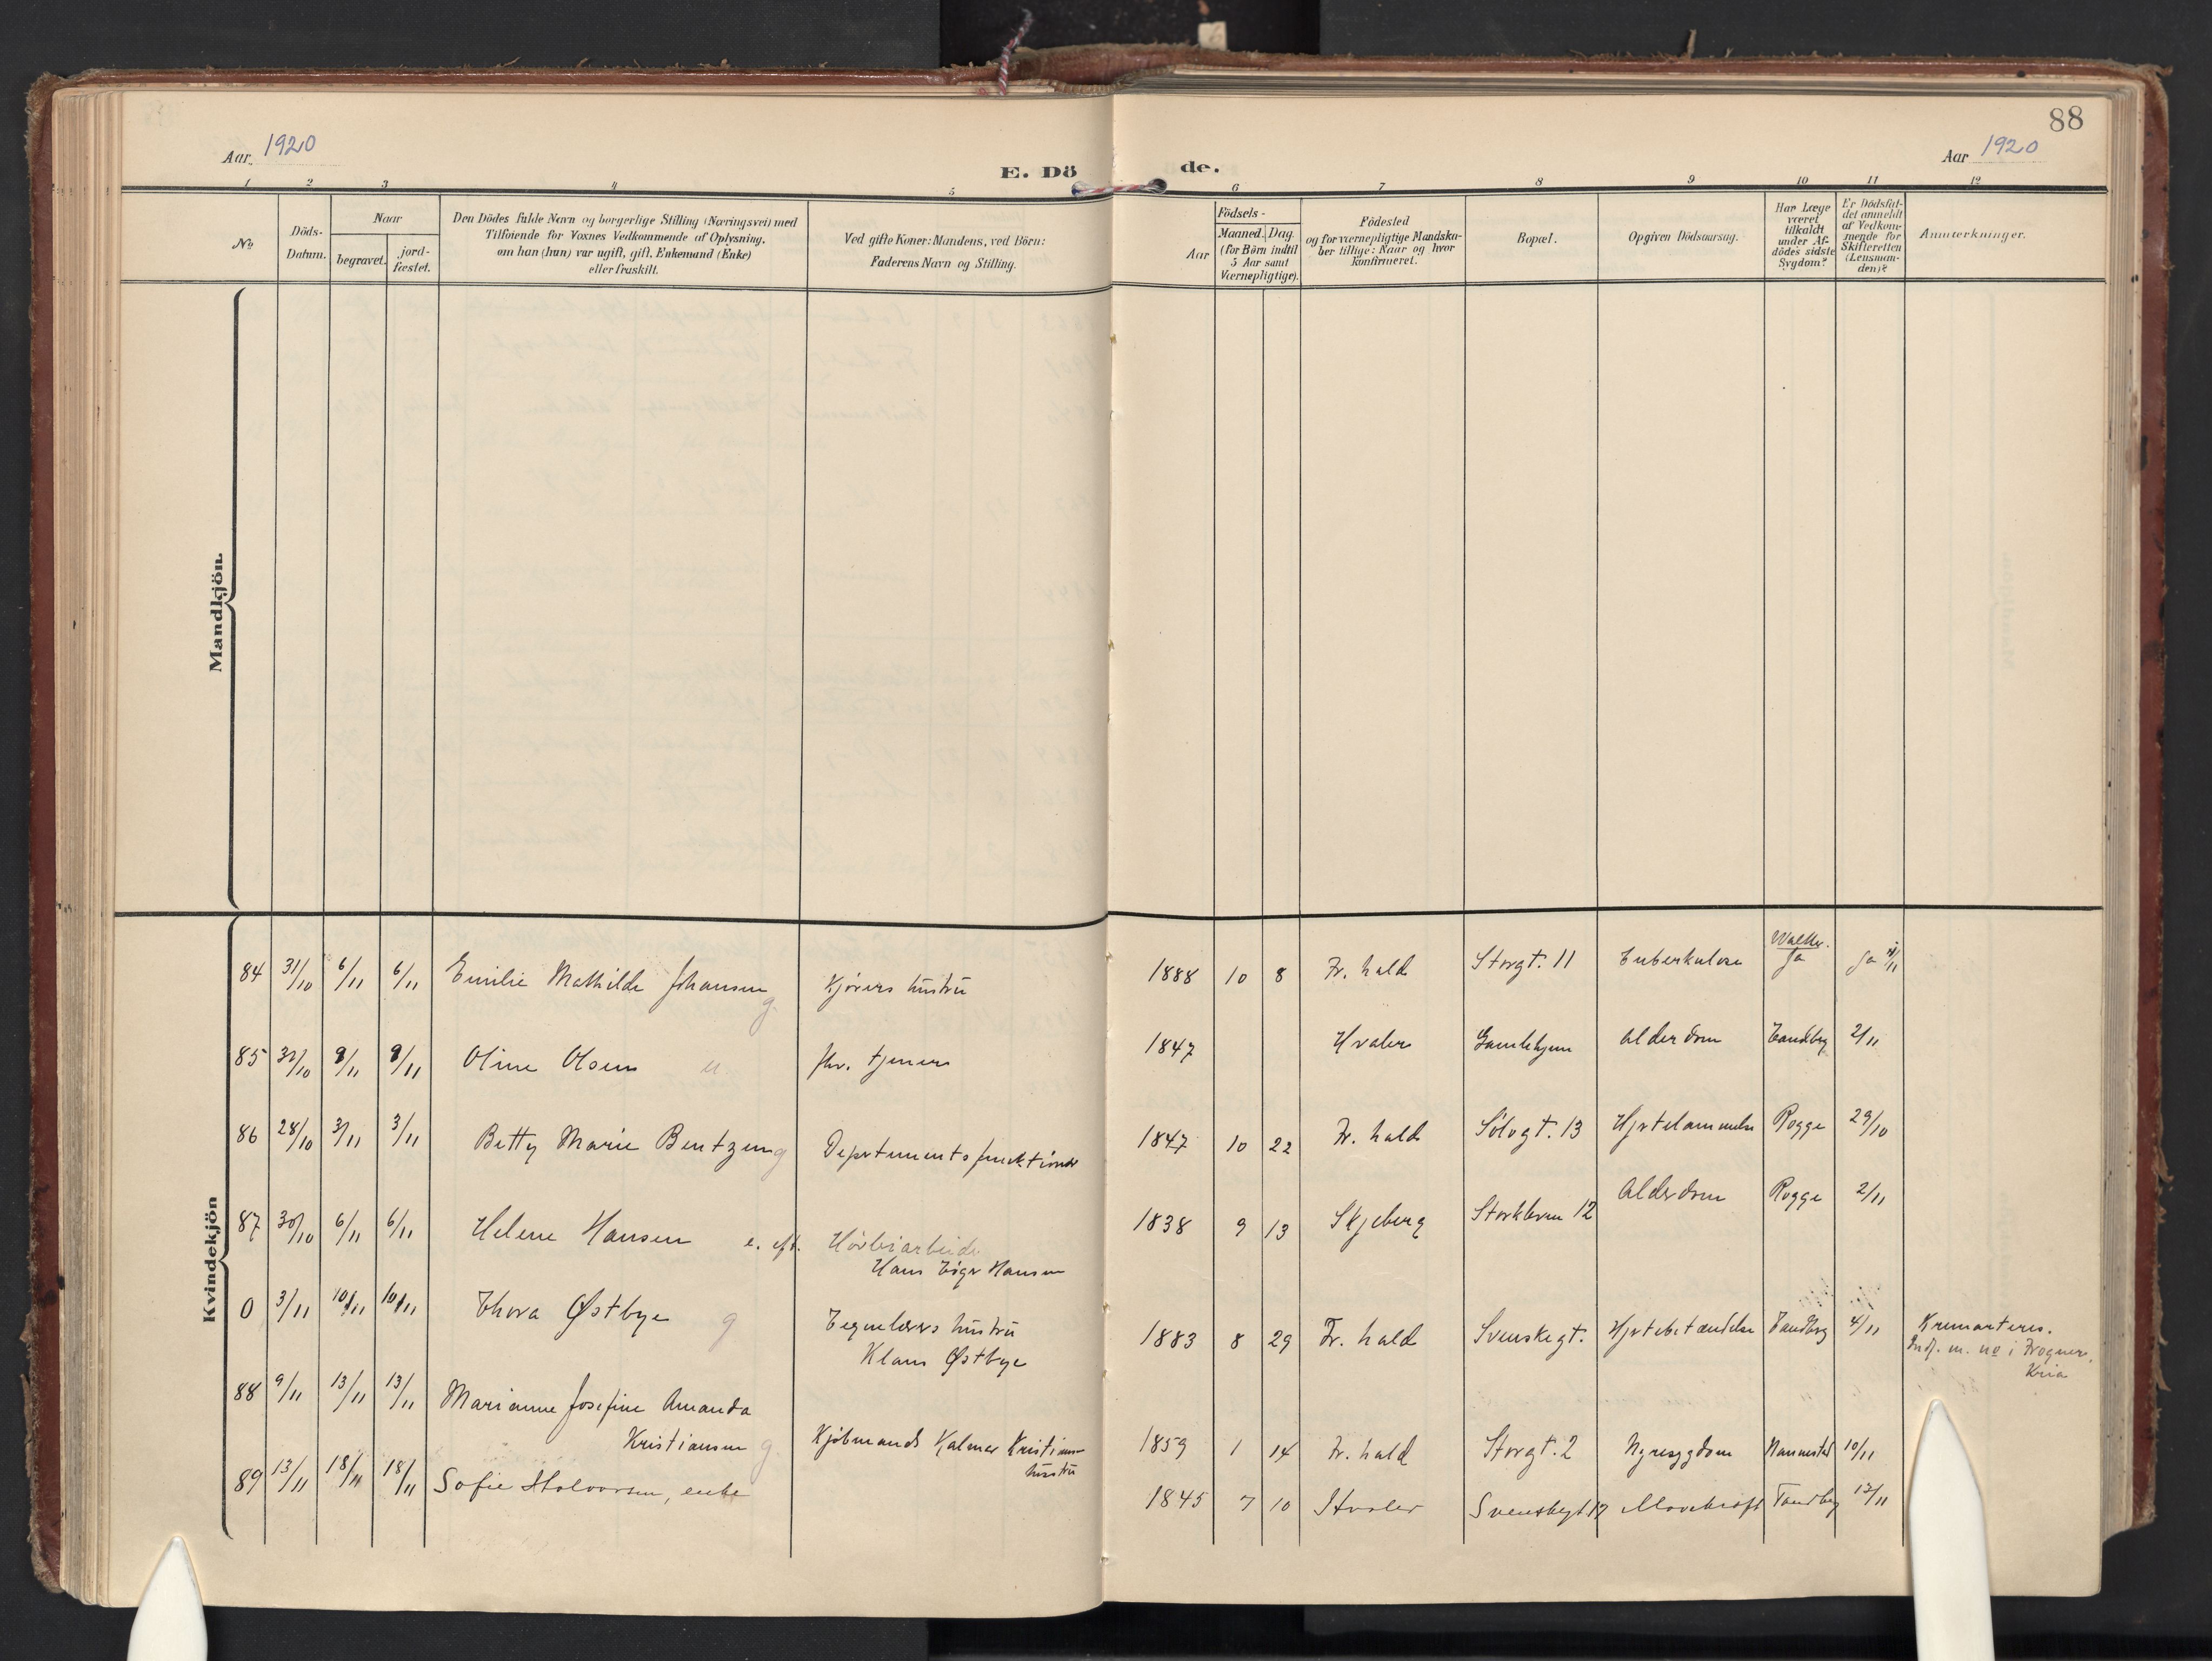 88
Aar 1920
E. Dö de.
Aar 1920
1 2 3 4 5 6 7 8 9 10 11 12
No
Döds-Datum.
Naar
begravet.
jord-fæstet.
Den Dödes fulde Navn og borgerlige Stilling (Næringsvei) med
Tilföiende for Voxnes Vedkommende af Oplysning,
om han (hun) var ugift, gift, Enkemand (Enke)
eller fraskilt.
Ved gifte Koner: Mandens, ved Börn:
Faderens Navn og Stilling.
Födsels-
Aar
Maaned. Dag.
(for Börn indtil
5 Aar samt
Værnepligtige).
Födested
og for værnepligtige Mandska-
ber tillige: Naar og hvor
konfirmeret.
Bopæl.
Opgiven Dödsaarsag.
Har Læge
været
tilkaldt
under Af-
dödes sidste
Sygdom?
Er Dödsfal-
det anmeldt
af Vedkom-
mende for
Skifteretten
(Lensman-
den)?
Anmerkninger.
Mandkjön.
Kvindekjön
84 31/10 6/11 6/11 Emilie Mathilde Johansen g Kjørers hustru 1888 10 8 Fr. hald Storgt. 11 Tuberkulose Ja Ja 4/11
85 30/10 9/11 9/11 Oline Olsen u fhv. tjener 1847 Hvaler Gamlehjem Alderdom Tandberg 2/11
86 28/10 3/11 3/11 Betty Marie Bentzen g Departementsfunktionær 1847 10 22 Fr. hald Sølvgt. 13 Hjertelammelse Rogge 29/10
87 30/10 6/11 6/11 Helene Hansen e. eft. Høvleriarbeider 1838 9 13 Skjeberg Storkleven 12 Alderdom Rogge 2/11
Hans Hansen
0 3/11 10/11 10/11 Thora Østbye g Tegnelærers hustru 1883 8 29 Fr. hald Svenskegt. Hjertebetændelse Tandberg 4/11 Kremarteres.
Klaus Østbye
Indf. m. no i Frogner,
Kria
88 9/11 13/11 13/11 Marianne Josefine Amanda
Kristiansen g Kjøbmands Kalmar Kristiansens 1859 1 14 Fr. hald Storgt. 2 Nyresygdom Nannestad 10/11
hustru
89 13/11 18/11 18/11 Sofie Halvorsen, enke 1845 7 10 Hvaler Svenskegt 17 Mavekræft Tandberg 13/11